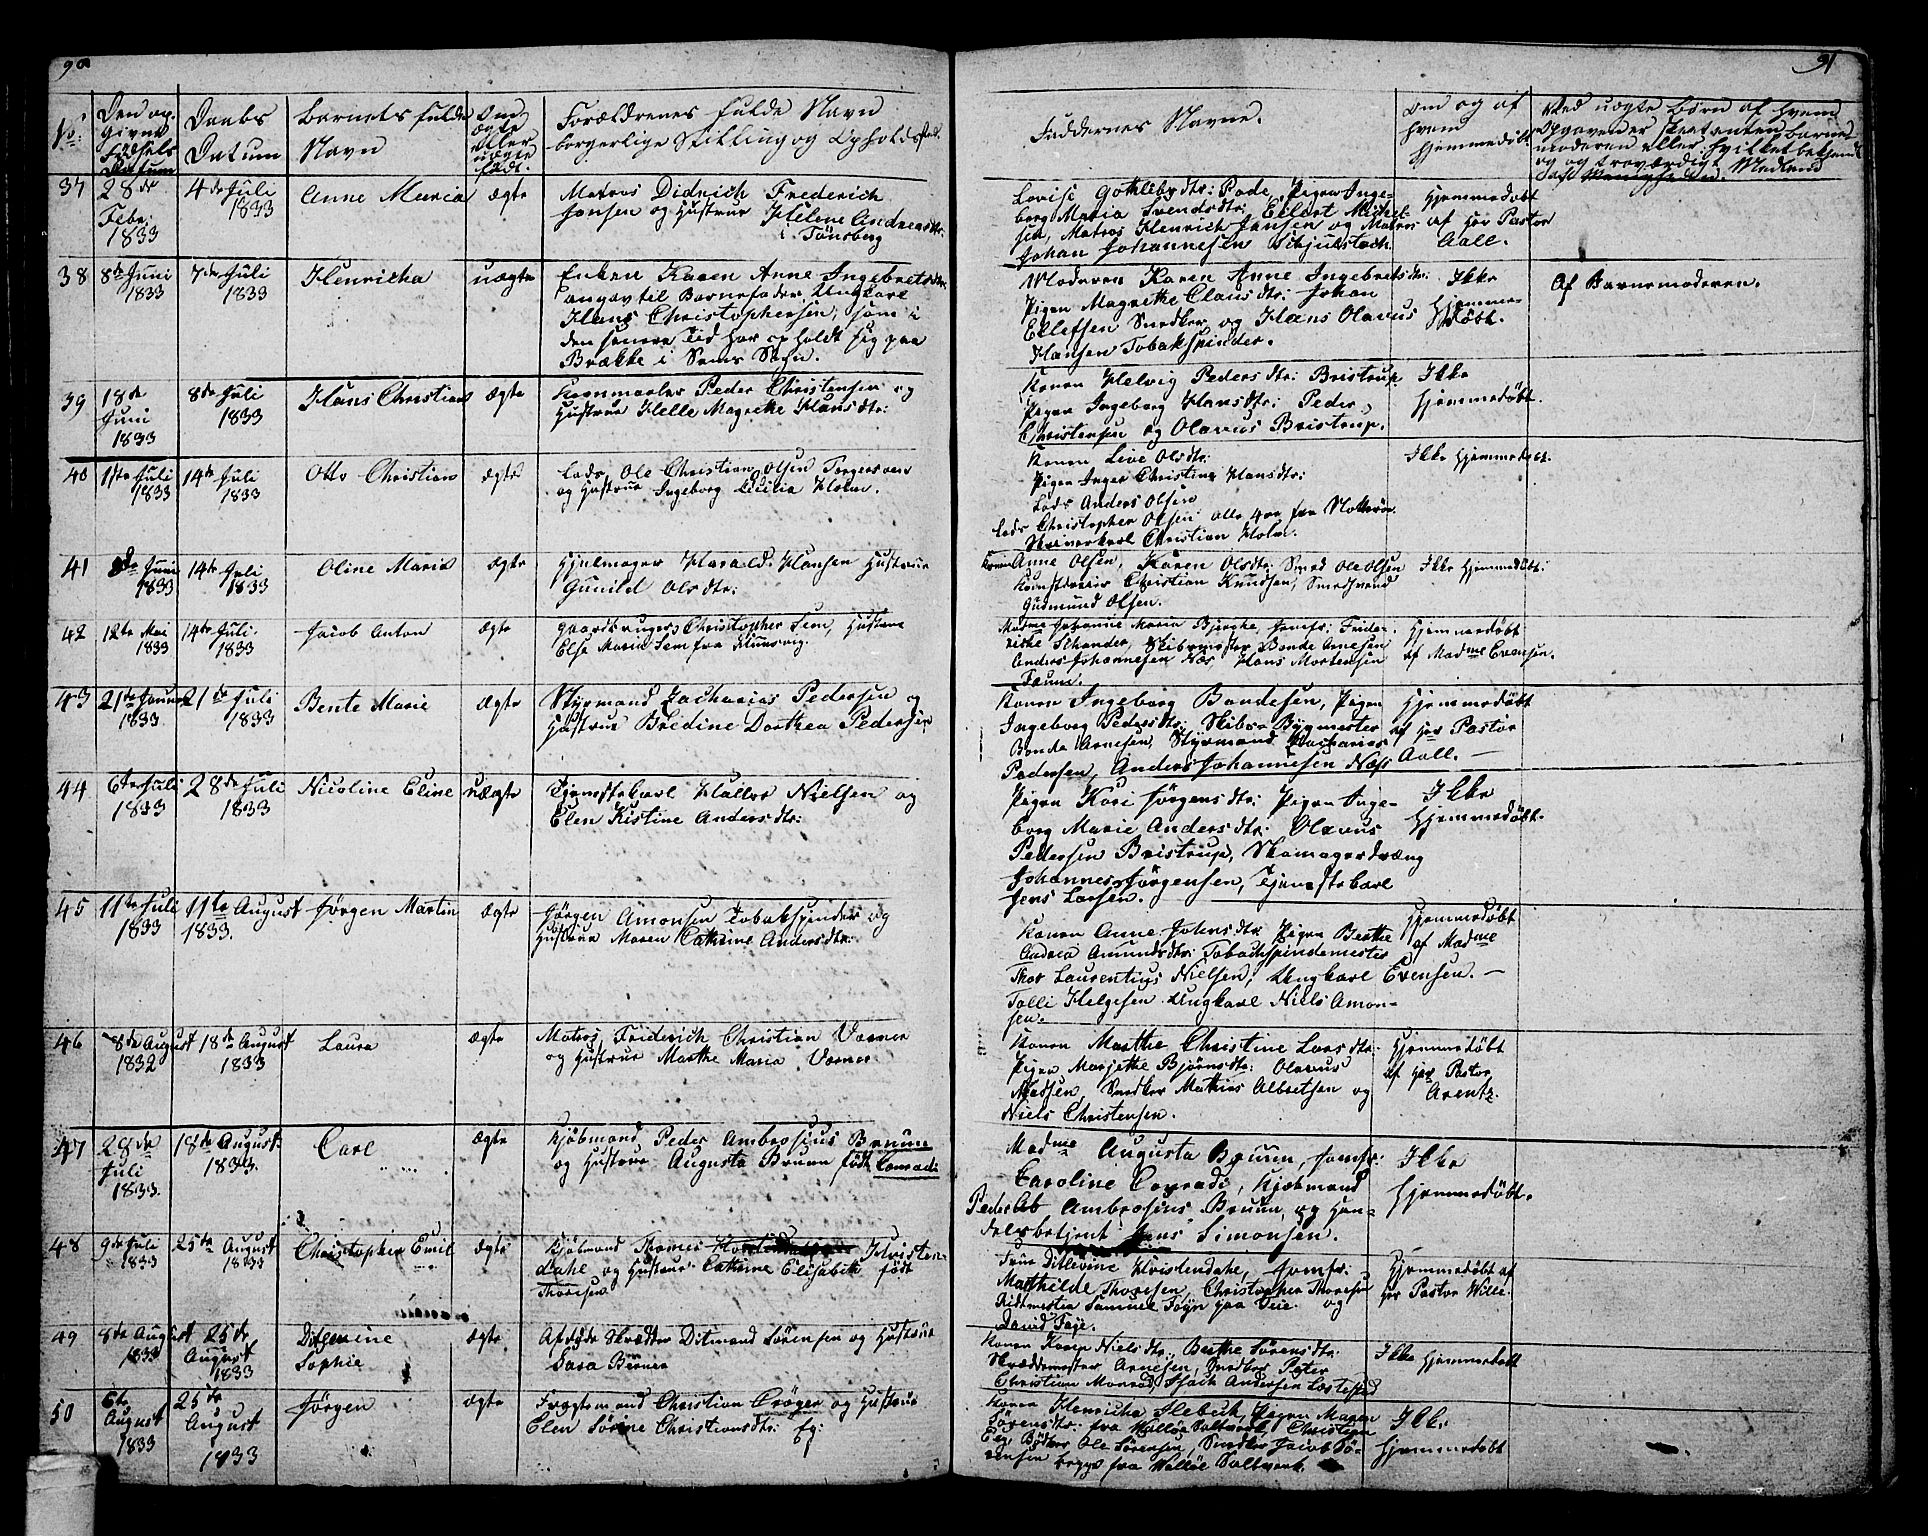 90
No:
Den op-
givne
Fødsels
Datum
Daabs
Datum
Barnets fulde
Navn
Om
ægte
eller
uægte
født.
Forældrenes fulde Navn
borgerlige Stilling og Opholdssted.
37
28de
Febr:
1833
4de Juli
1833
Anne Maria
ægte
Matros Didrich Frederich
Jansen og Hustrue Helene Andreasdtr:
i Tønsberg
38
8de Juni
1833
7de Juli
1833
Henricha
uægte
Enken Karen Anne Ingebretsdtr:
angav til Barnefader Ungkarl
Hans Christophersen, som i
den senere Tid har opholdt sig paa
Brække i Sems Sogn.
39
18de
Juni
1833
8de Juli
1833
Hans Christian
ægte
Kornmaaler Peder Christensen og
Hustrue Helle Magrethe Hansdtr:
40
1ste Juli
1833
14de Juli
1833
Otto Christian
ægte
Lods Ole Christian Olsen Torgersøen
og Hustrue Ingeborg Cicilia Holm.
41
8de Juni
1833
14de Juli
1833
Oline Maria
ægte
Hjulmager Harald Hansen Hustrue
Gunild Olsdtr:
42
12te Mai
1833
14de Juli.
1833
Jacob Anton
ægte
Gaardbruger Christopher Sem, Hustrue
Else Maria Sem fra
43
21de Januar
1833
21de Juli
1833
Bente Marie
ægte
Styrmand Zacharias Pedersen og
Hustrue Bredine Dorthea Pedersen
44
6te Juli
1833
28de Juli
1833
Nicoline Eline
uægte
Tjenestekarl Halvor Nielsen og
Elen Kistine Andersdtr:
45
11te Juli
1833
11te August
1833.
Jørgen Martin
ægte
Jørgen Amonsen Tobakspinder og
Hustrue Maren Cathrine Andersdtr:
46
8de August
1832
18de August
1833
Laura
ægte
Matros Friderich Christian Værner
og Hustrue Marthe Maria Værner
47
28de
Juli
1833.
18de August:
1833.
Carl
ægte
Kjøbmand Peder Ambrosius Bruun
og Hustrue Augusta Bruun født Conradi
48
9de Juli
1833
25de August
1833
Christopher Emil
ægte
Kjøbmand Thomes Hvisten-
dahl og Hustrue Cathrine Elisabeth født
Thoresen
49
8de August
1833
25de
August
1833
Ditlevine
Sophie
ægte
Afdøde Skrædder Ditmand Sørensen og Hustrue
Sara Berner
50
6te
August
1833
25de
August
1833
Jørgen
ægte
Fragtemand Christian Crøger og Hustrue
Elen Sørine Christiansdtr: Eg:
91
Faddernes Navne.
Om og af
hvem
hjemmedøbt
Ved uægte Børn af hvem
Opgaven er skeet enten Barne
moderen eller hvilket bekjendt
og troværdigt Medlem
af Menigheden.
Lovise Gothlebsdtr: Rode, Pigen Inge-
borg Maria Svendsdtr: Ellert Michel-
sen, Matros Henrich Jansen og Matros
Johan Johannesen Schjulstach.
Hjemmedøbt
af Hr: Pastor
Aall.
Moderen Karen Anne Ingebretsdtr:
Pigen Magrethe Clausdtr: Johan
Ellefsen Snedker og Hans Olavus
Hansen Tobakspinder.
Ikke
Hjemme-
døbt.
Af Barnemoderen.
Konen Helvig Pedersdtr: Bristrup
Pigen Ingeborg Hansdtr: Peder
Christensen og Olavus Bristrup.
Ikke
Hjemmedøbt.
Konen Live Olsdtr:
Pigen Inger Christine Hansdtr:
Lods Anders Olsen
Lods Christopher Olsen alle 4re fra Nøtterøe.
Skriverkarl Christian Holm.
Ikke Hjemmedøbt.
Konen Anne Olsen, Karen Olsdtr: Smed Ole Olsen
Christian Knudsen, Smedsvend
Gudmund Olsen.
Ikke Hjemmedøbt:
Madme Johanne Maria Bjerche, Jomfr: Fride-
riche Schander, Skibsmester Bonde Arnesen
Anders Johannesen Næs, Hans Mortensen
Hjemmedøbt
af Madme Evensen.
Konen Ingeborg Bondesen, Pigen
Ingeborg Pedersdtr: Skibsbygmester
Bonde Arnesen, Styrmand Zacharias
Pedersen, Anders Johannesen Næss
Hjemmedøbt
af Hr Pastor
Aall. —
Pigen Kari Jørgensdtr: Pigen Inge-
borg Marie Andersdtr: Olavus
Pedersen Bristrup, Skomagerdræng
Johannes Jørgensen, Tjenestekarl
Jens Larsen.
Ikke
Hjemmedøbt.
Konen Anne Johnsdtr: Pigen Berthe
Andrea Amundsdtr: Tobachspindemester
Thor Laurentius Nielsen, Ungkarl
Tolli Helgesen Ungkarl Niels Amon-
sen.
Hjemmedøbt
af Madme
Evensen. —
Konen Marthe Christine Larsdtr:
Pigen Marjethe Bjørnsdtr: Olavus
Madsen, Snedker Mathias Albretsen og
Niels Christensen.
Hjemmedøbt
af Hr Pastor
Arentz.
Madme Augusta Bruun, Jomfr:
Caroline Conradi, Kjøbmand
Peder Ab Ambrosius Bruun, og Han-
delsbetjent Jens Simonsen.
Ikke
Hjemmedøbt.
Frue Ditlevine Hvistendahl, Jomfr:
Mathilde Thoresen, Christopher Thoresen
Ridemester Samuel Føyn paa Veie og
David Faye.
Hjemmedøbt af
Hr Pastor Wille.
Konen Karen Nielsdtr: Berthe Sørensdtr:
Skræddermester Arnesen, Snedker Peter
Christian Monrad, Isach Andersen Løstestad
Ikke Hjemmedøbt
Konen Henricha Slebuk, Pigen Maren
Sørensdtr: fra Walløe Saltverk, Christian
Eeg, Bødker Ole Sørensen, Snedker Jacob Sø-
rensen begge fra Walløe Saltverk.
Ikke
Hjemmedøbt